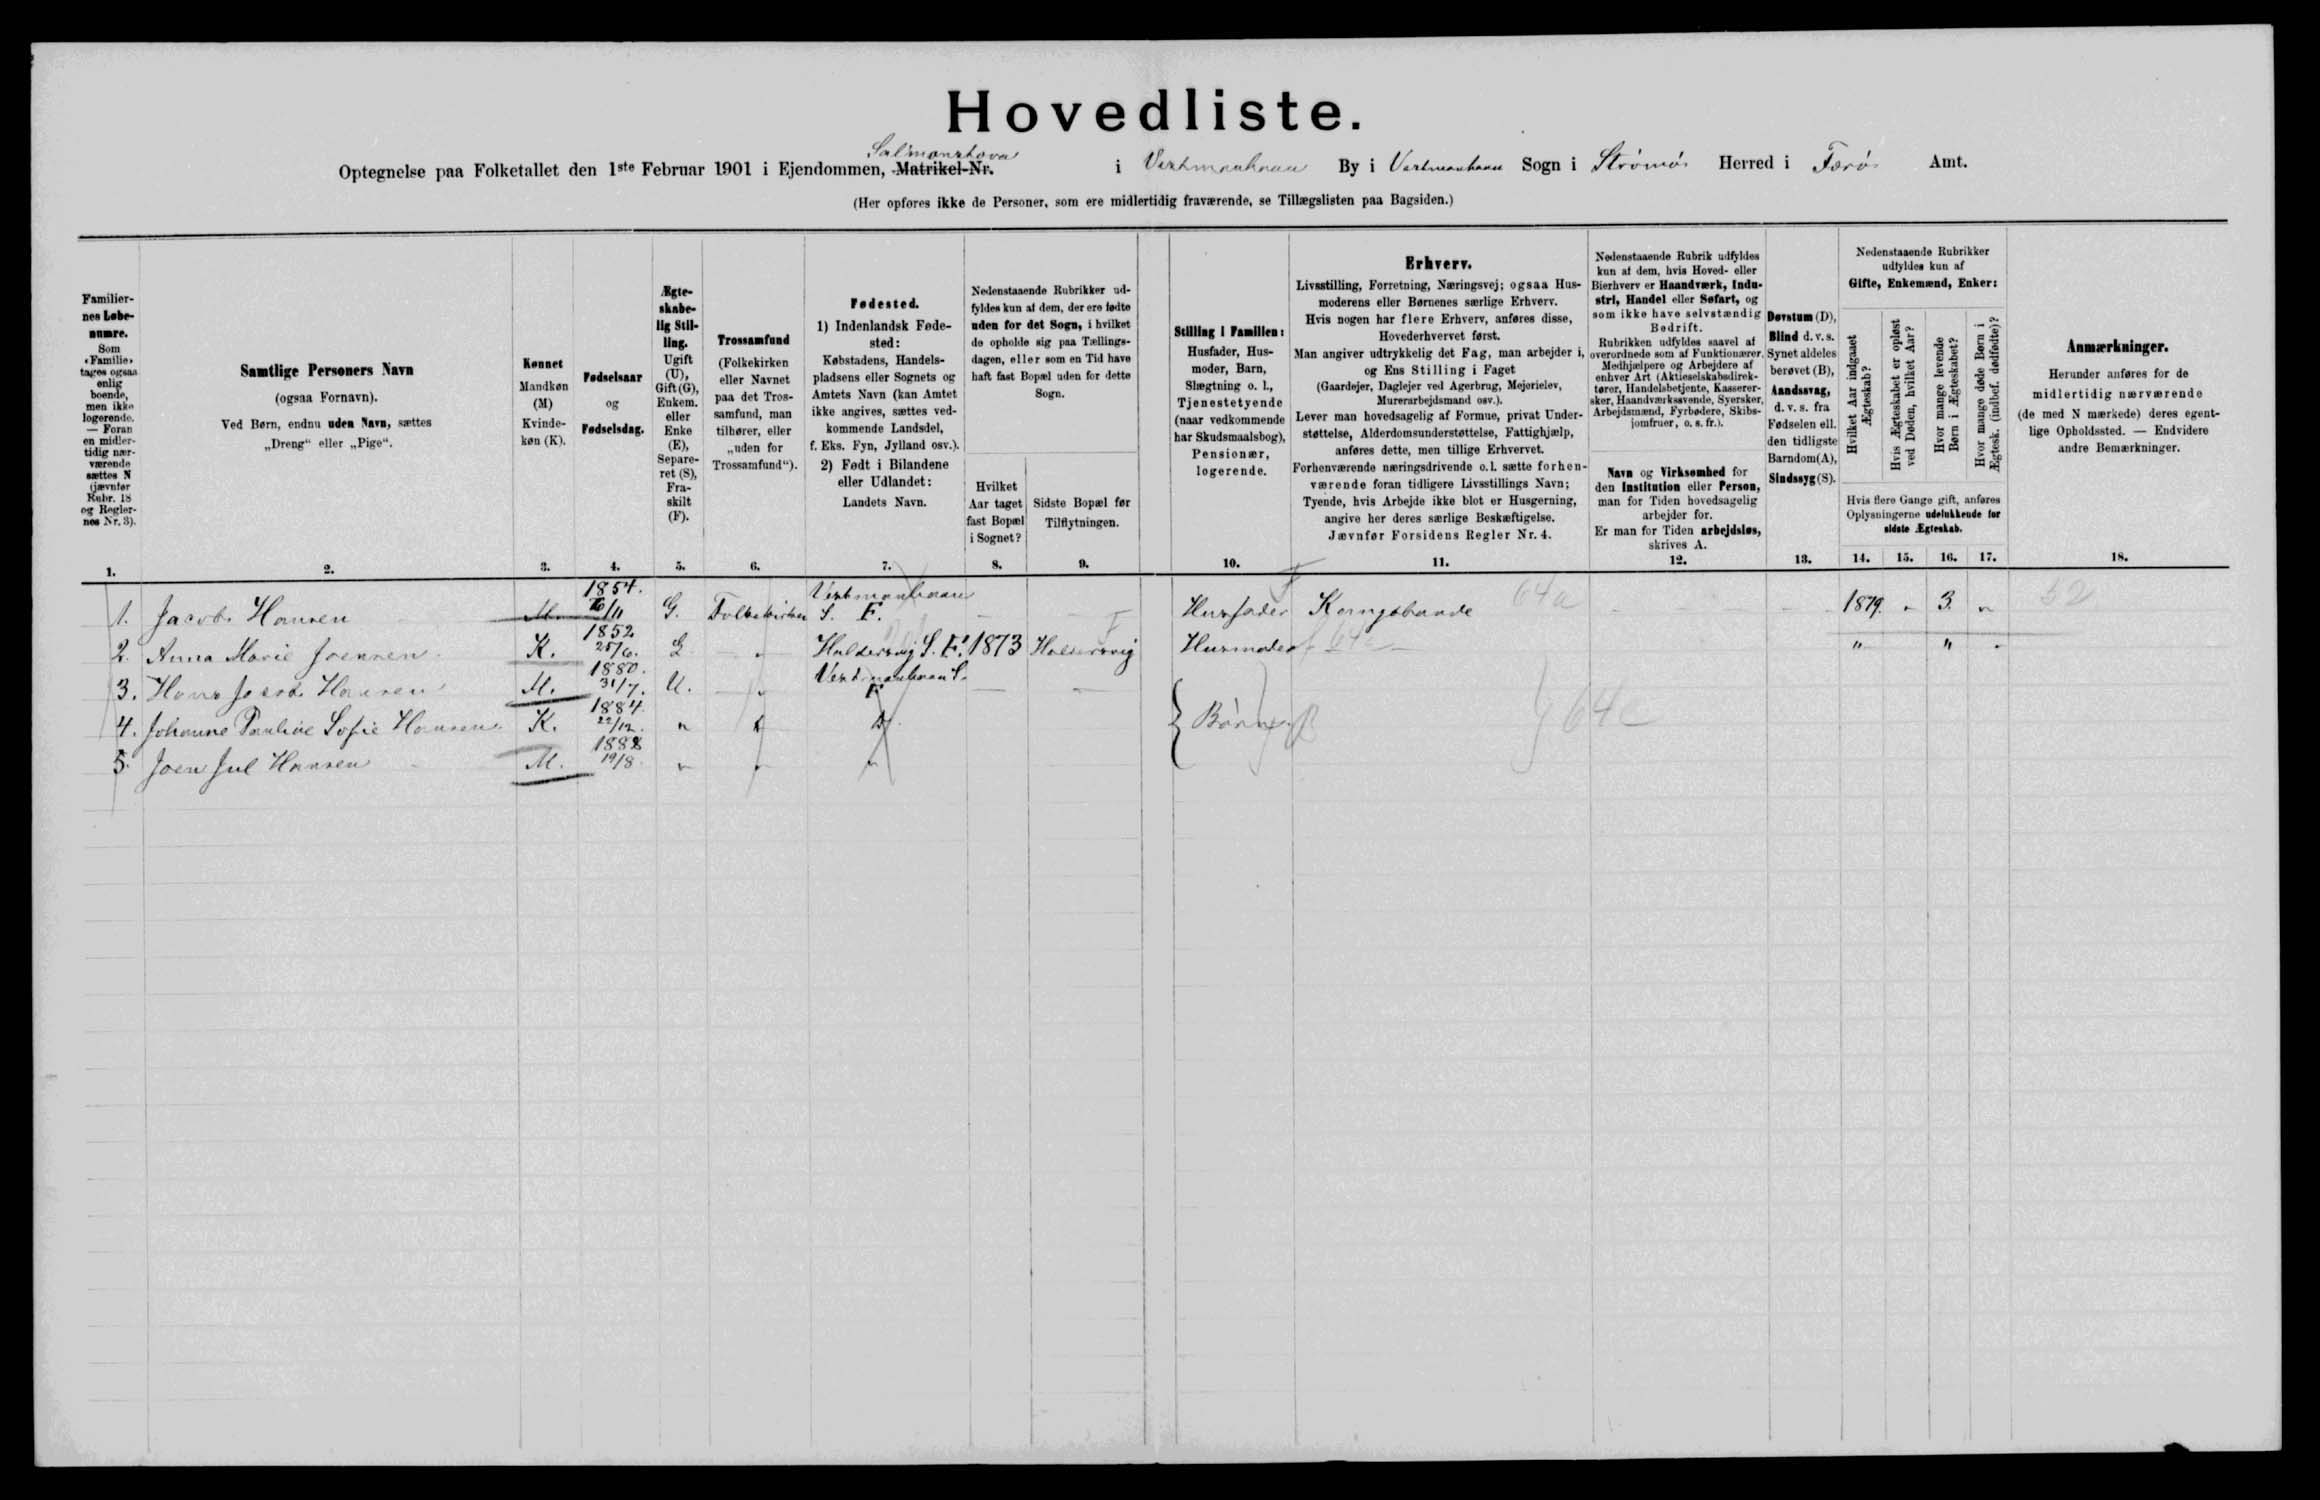 Hovedliste.
Optegnelse paa Folketallet den 1ste Februar 1901 i Ejendommen, Matrikel-Nr. Salmonshova i Vestmanhavn By i Vestmanhavn Sogn i Strömö Herred i Færö Amt.
(Her opføres ikke de Personer, som ere midlertidig fraværende, se Tillægslisten paa Bagsiden.)
Familiernes Løbenumre.
Som «Familie» tages ogsaa enlig boende, men ikke logerende. — Foran en midlertidig nærværende sættes N (jævnfør Rubr. 18 og Reglernes Nr. 3).
Samtlige Personers Navn
(ogsaa Fornavn).
Ved Børn, endnu uden Navn, sættes
„Dreng“ eller „Pige“.
Kønnet
Mandkøn (M)
Kvindekøn (K).
Fødselsaar
og
Fødselsdag.
Ægteskabelig Stilling.
Ugift (U), Gift (G), Enkem. eller Enke (E), Separeret (S), Fraskilt (F).
Trossamfund
(Folkekirken eller Navnet paa det Trossamfund, man tilhører, eller „uden for Trossamfund“).
Fødested.
1) Indenlandsk Fødested:
Købstadens, Handelspladsens eller Sognets og Amtets Navn (kan Amtet ikke angives, sættes vedkommende Landsdel, f. Eks. Fyn, Jylland osv.).
2) Født i Bilandene eller Udlandet:
Landets Navn.
Nedenstaaende Rubrikker udfyldes kun af dem, der ere fødte uden for det Sogn, i hvilket de opholde sig paa Tællingsdagen, eller som en Tid have haft fast Bopæl uden for dette Sogn.
Hvilket Aar taget fast Bopæl i Sognet?
Sidste Bopæl før Tilflytningen.
Stilling i Familien:
Husfader, Husmoder, Barn, Slægtning o. l., Tjenestetyende (naar vedkommende har Skudsmaalsbog), Pensionær, logerende.
Erhverv.
Livsstilling, Forretning, Næringsvej; ogsaa Husmoderens eller Børnenes særlige Erhverv.
Hvis nogen har flere Erhverv, anføres disse, Hovederhvervet først.
Man angiver udtrykkelig det Fag, man arbejder i, og Ens Stilling i Faget
(Gaardejer, Daglejer ved Agerbrug, Mejerielev, Murerarbejdsmand osv.).
Lever man hovedsagelig af Formue, privat Understøttelse, Alderdomsunderstøttelse, Fattighjælp, anføres dette, men tillige Erhvervet.
Forhenværende næringsdrivende o.l. sætte forhenværende foran tidligere Livsstillings Navn;
Tyende, hvis Arbejde ikke blot er Husgerning, angive her deres særlige Beskæftigelse.
Jævnfør Forsidens Regler Nr. 4.
Nedenstaaende Rubrik udfyldes kun af dem, hvis Hoved- eller Bierhverv er Haandværk, Industri, Handel eller Søfart, og som ikke have selvstændig Bedrift.
Rubrikken udfyldes saavel af overordnede som af Funktionærer, Medhjælpere og Arbejdere af enhver Art (Aktieselskabsdirektører, Handelsbetjente, Kasserersker, Haandværkssvende, Syersker, Arbejdsmænd, Fyrbødere, Skibsjomfruer, o. s. fr.).
Navn og Virksomhed for den Institution eller Person, man for Tiden hovedsagelig arbejder for.
Er man for Tiden arbejdsløs, skrives A.
Døvstum (D), Blind d. v. s. Synet aldeles berøvet (B), Aandssvag, d. v. s. fra Fødselen ell. den tidligste Barndom (A), Sindssyg (S).
Nedenstaaende Rubrikker udfyldes kun af
Gifte, Enkemænd, Enker:
Hvilket Aar indgaaet Ægteskab?
Hvis Ægteskabet er opløst ved Døden, hvilket Aar?
Hvor mange levende Børn i Ægteskabet?
Hvor mange døde Børn i Ægtesk. (indbef. dødfødte)?
Hvis flere Gange gift, anføres Oplysningerne udelukkende for sidste Ægteskab.
Anmærkninger.
Herunder anføres for de midlertidig nærværende (de med N mærkede) deres egentlige Opholdssted. — Endvidere andre Bemærkninger.
1. 2. 3. 4. 5. 6. 7. 8. 9. 10. 11. 12. 13. 14. 15. 16. 17. 18.
1. Jacob Hansen M. 1854. G. Folkekirken Vestmanhavn S. F. — — Husfader Kongsbonde 64a — — 1879. " 3. " 52
2. Anna Marie Joensen K. 1852 25/6. G " Haldersvig S. F. 1873 Haldersvig Husmoder 64c " " "
3. Hans Jacob Hansen M. 1880. 31/7. U. " Vestmanhavn S. F — —
4. Johanne Pauline Sofie Hansen K. 1884. 22/12. " " " Børn B 64c
5. Joen Jul Hansen M. 1888 19/8. " " "